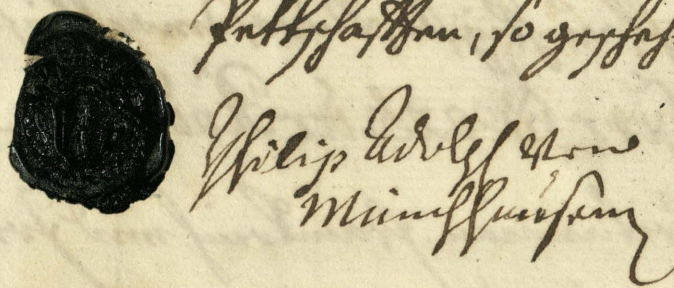 Pettschafften, so gescheh
Philip Adolph von
Münchhausen